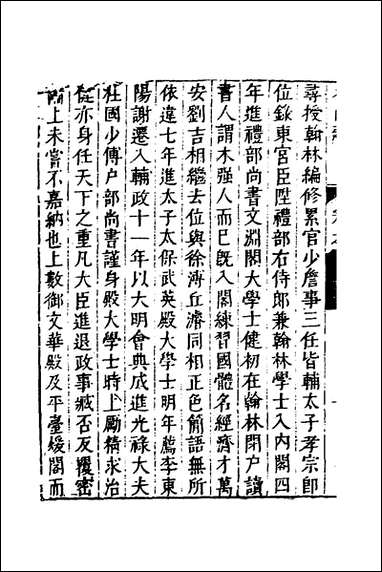 尋授翰林編修累官少詹事三任皆輔太子孝宗卽
位錄東宮臣陞禮部右侍郎兼翰林學士入內閣四
年進禮部尚書文淵閣大學士健初在翰林閉戶讀
書人謂木强人而巳旣入閣練習國體名經濟才萬
安劉吉相繼去位與徐溥丘濬同相正色簡語無所
依違七年進太子太保武英殿大學士明年薦李東
陽謝遷入輔政十一年以大明會典成進光祿大夫
柱國少傅戶部尚書謹身殿大學士時上勵精求治
健亦身任天下之重凡大臣進退政事臧否反覆密
上未嘗不嘉納也上數御文華殿及平臺煖閣而